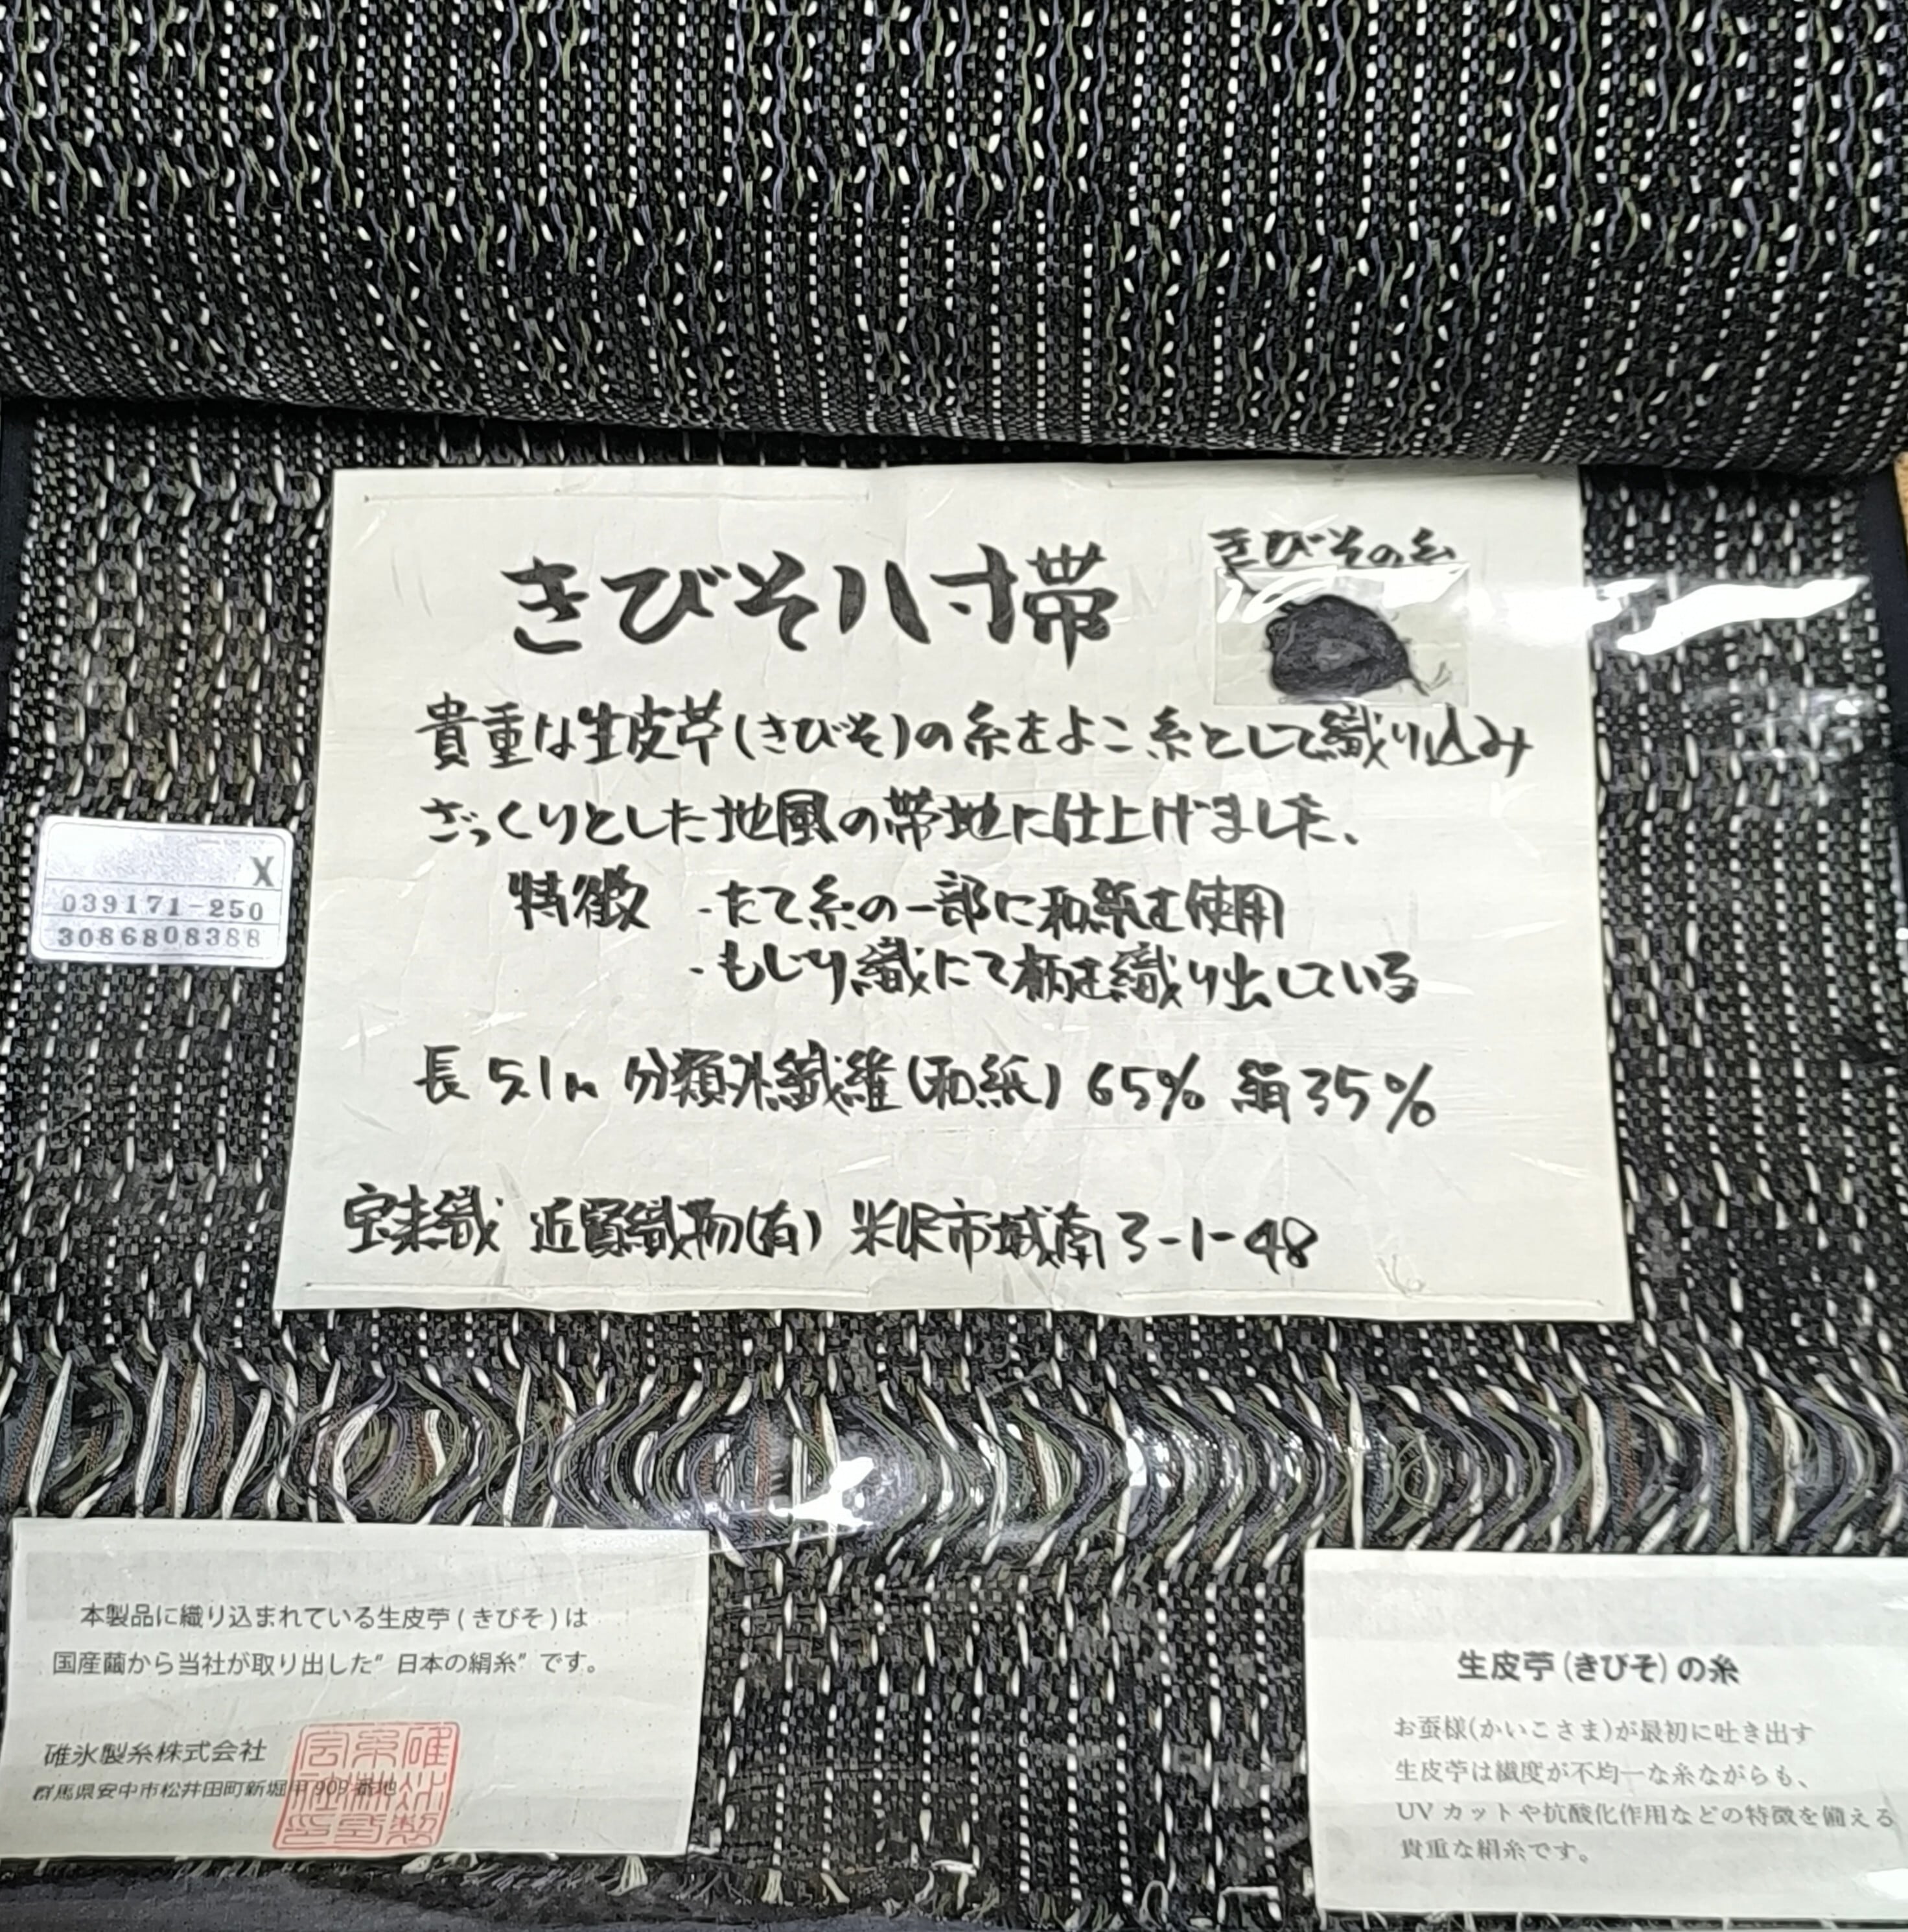 きびそ八寸帯
きびその糸
貴重な生皮苧(きびそ)の糸をよこ糸として織り込み
ざっくりとした地風の帯地に仕上げました、
特徴 ・たて糸の一部に和紙を使用
・もじり織にて柄を織り出している
長 5.1m 分類外繊維(和紙) 65% 絹35%
宝来織 近賢織物(有) 米沢市城南3-1-48
X
039171-250
3086808388
本製品に織り込まれている生皮苧(きびそ)は
国産繭から当社が取り出した"日本の絹糸"です。
碓氷製糸株式会社
群馬県安中市松井田町新堀甲909番地
碓氷製糸株式会社印
生皮苧(きびそ)の糸
お蚕様(かいこさま)が最初に吐き出す
生皮苧は繊度が不均一な糸ながらも、
UVカットや抗酸化作用などの特徴を備える
貴重な絹糸です。